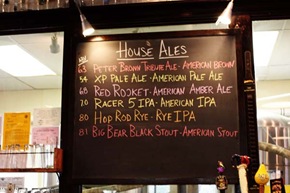 House Ales
IBU
63 Peter Brown Tribute Ale - American Brown
54 XP Pale Ale - American Pale Ale
65 Red Rocket - American Amber Ale
70 Racer 5 IPA - American IPA
80 Hop Rod Rye - Rye IPA
81 Big Bear Black Stout - American Stout